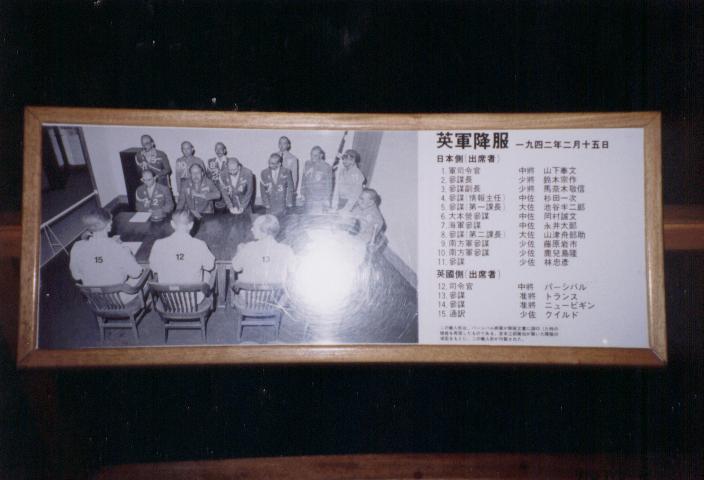 英軍降服 一九四二年二月十五日
日本側(出席者)
1. 軍司令官 中將 山下奉文
2. 參謀長 少將 鈴木宗作
3. 參謀副長 少將 馬奈木敬信
4. 參謀(情報主任) 中佐 杉田一次
5. 參謀(第一課長) 大佐 池谷半二郎
6. 大本營參謀 中佐 岡村誠文
7. 海軍參謀 中佐 永井太郎
8. 參謀(第二課長) 大佐 山津
9. 南方軍參謀 少佐 藤原岩市
10. 南方軍參謀 少佐 鹿兒島隆
11. 參謀 少佐 林忠彥
英國側(出席者)
12. 司令官 中將 パーシバル
13. 參謀 准將 トランス
14. 參謀 准將 ニュービギン
15. 通訳 少佐 ワイルド
15
12
13
2
3